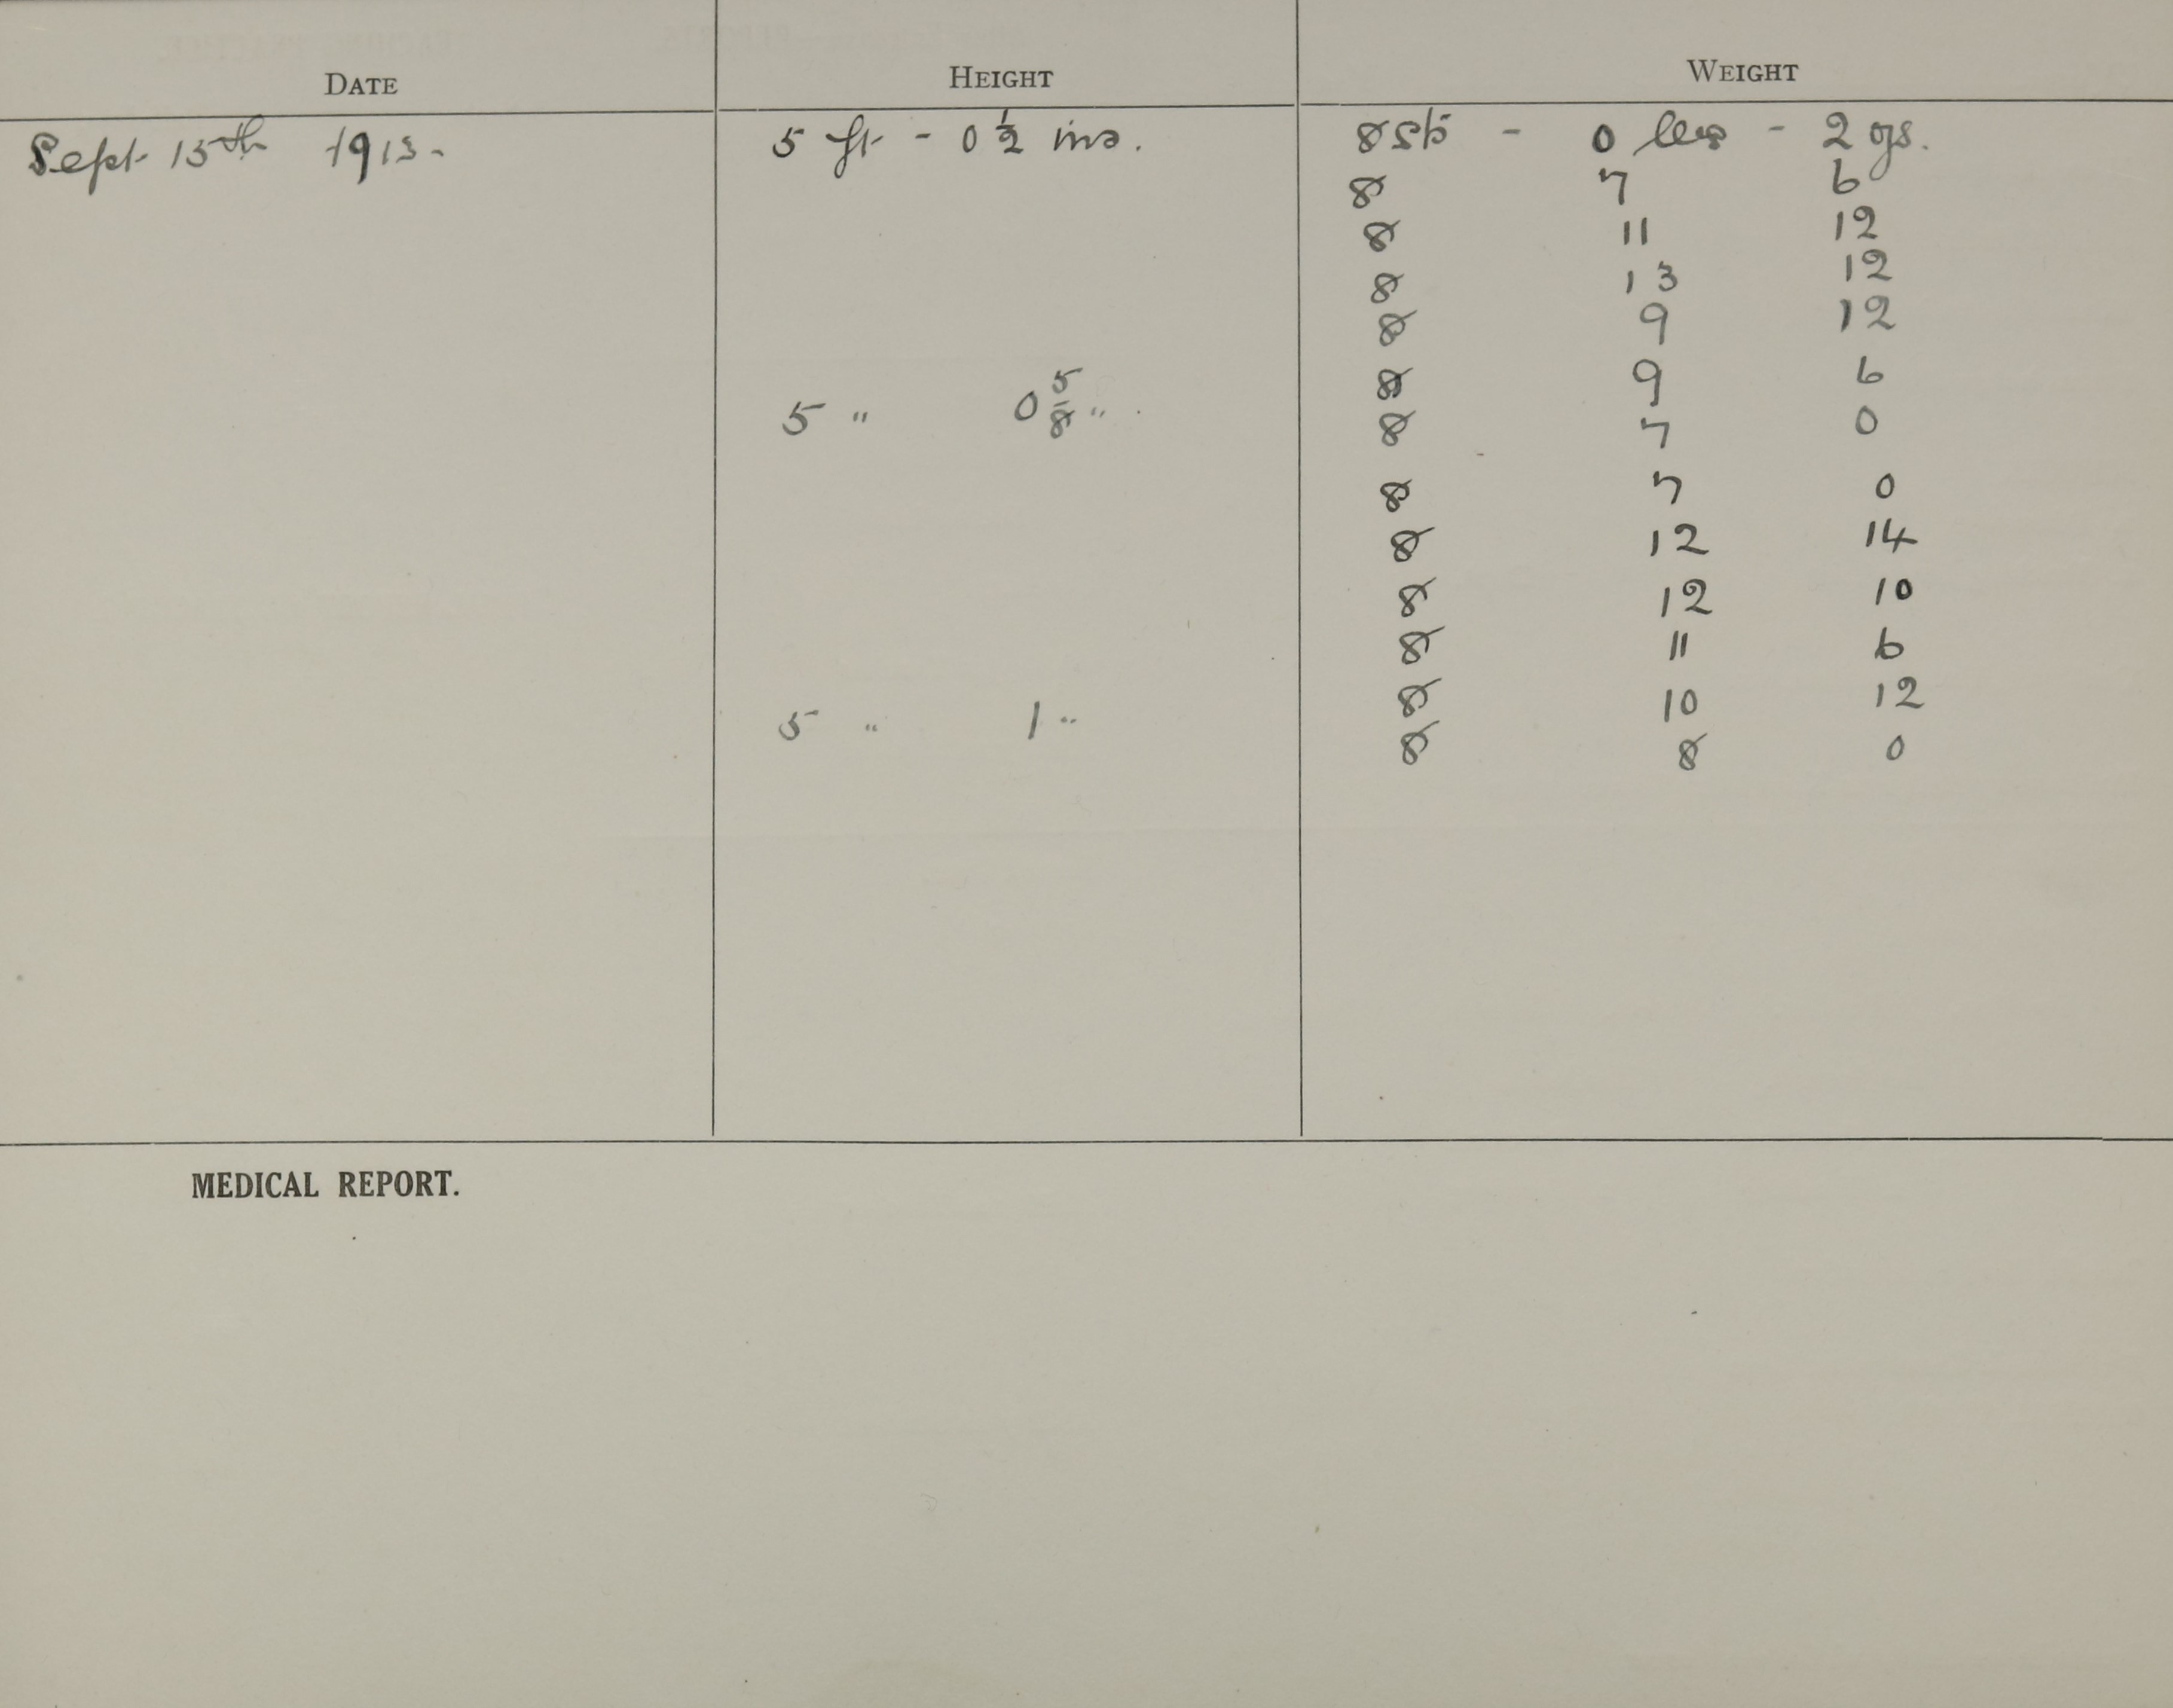 DATE HEIGHT WEIGHT
Sept 15th 1913. 5 ft - 0 ½ ins. 8 sts - 0 lbs - 2 ozs.
8 7 6
8 11 12
8 13 12
8 9 12
8 9 6
5 " 0 ⅝ " . 8 7 0
8 7 0
8 12 14
8 12 10
8 11 6
8 10 12
5 " 1 " 8 8 0
MEDICAL REPORT.